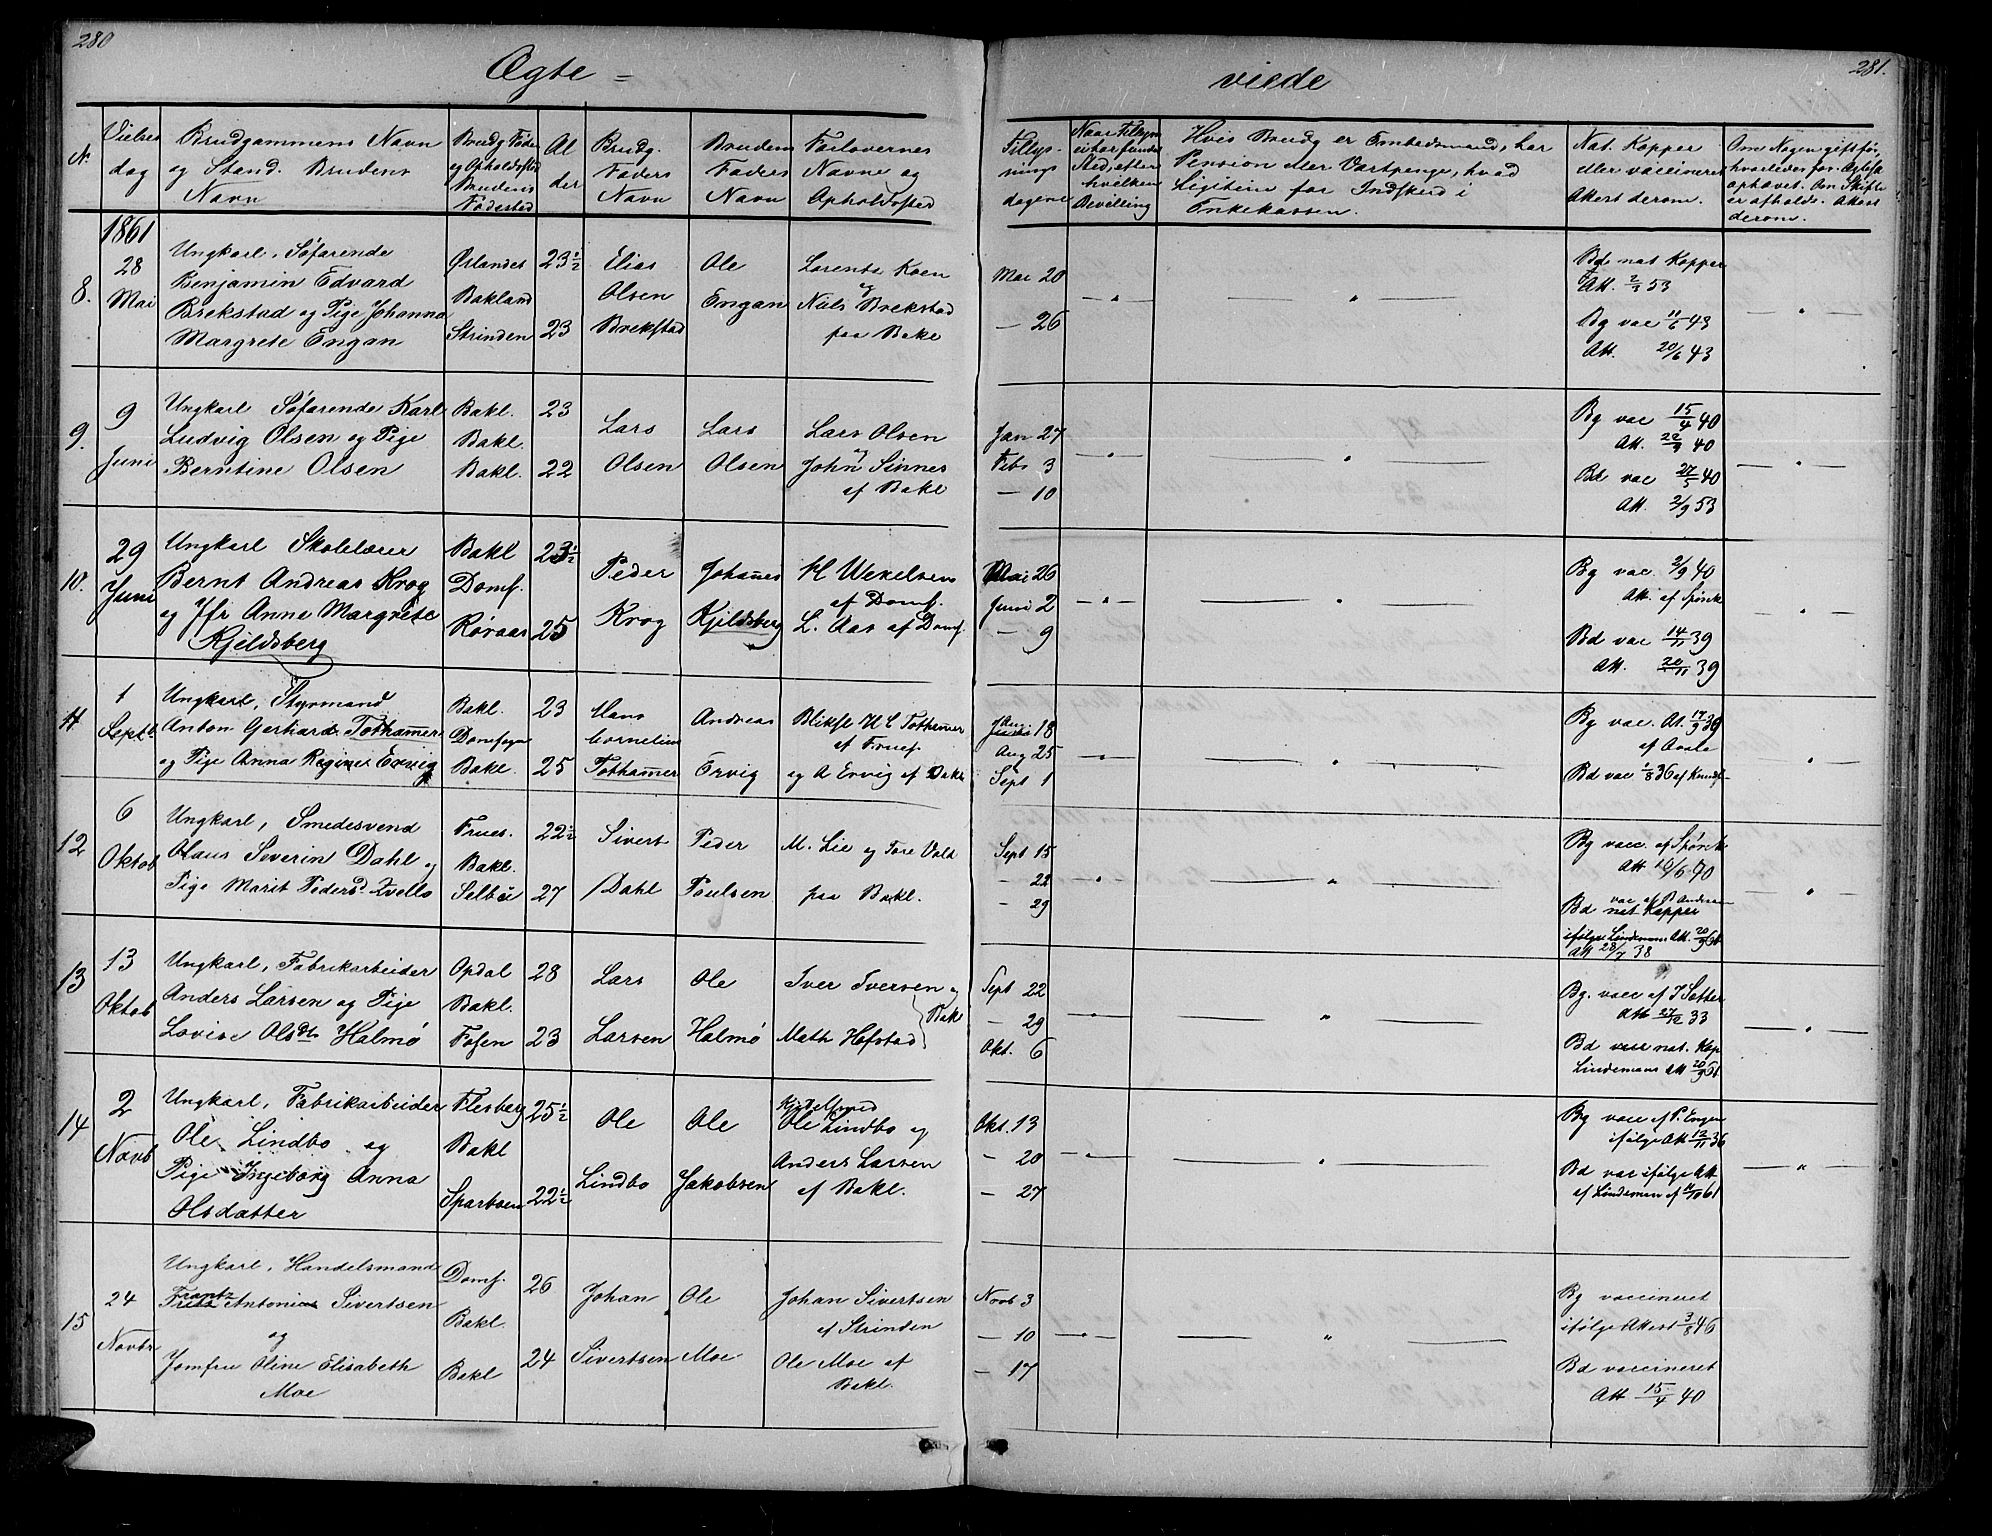 280
Ægte =
viede
281.
N.
Vielses
dag
Brudgommens Navn
og Stand. Brudens
Navn
Brudg Føde
og Opholdssted
Brudens
Fødested
Al
der
Brudg.
Faders
Navn
Brudens
Faders
Navn
Forlovernes
Navne og
Opholdssted
Tillys-
nings
dagene
Hvis Brudg er Embedsmand, har
Pension eller Vartpenge, hvad
for Indskud i
Enkekassen.
Nat. Kopper
eller vaccineret
Attest derom.
1861
8.
28
Mai
Ungkarl, Søfarende
Benjamin Edvard
Brekstad og Pige Johanna
Margrete Engan
Ørlandet
Bakland
Strinden
23½
23
Elias
Olsen
Brekstad
Ole
Engan
Lorents Koen
og
Niels Brekstad
paa Bakl
Mai 20
— 26
Bd nat Kopper
Att. 2/9 53
Bg vac 11/6 43
Att. 20/6 43
9.
9
Juni
Ungkarl Søfarende Karl
Ludvig Olsen og Pige
Berntine Olsen
Bakl.
Bakl.
Bakl.
23
22
Lars
Olsen
Lars
Olsen
Lars Olsen
og
John Sinnes
af Bakl
Jan 27
Feb 3
— 10
Bg vac 15/4 40
Att. 22/9 40
Bd vac 27/5 40
Att. 2/9 53
10.
29
Juni
Ungkarl Skolelærer
Bernt Andreas Krog
og Jfr Anne Margrete
Kjeldsberg
Bakl
Domf.
Røraas
23½
25
Peder
Krog
Johannes
Kjeldsberg
H Wexelsen
af Domf.
L. Aas af Domf.
Mai 26
Juni 2
— 9
Bg vac. 2/9 40
Att. af Spørck
Bd vac 14/11 39
Att. 20/11 39
11.
1
Septb
Ungkarl, Styrmand
Anton Gerhard Tothamer
og Pige Anna Regine Ervig
Bakl.
Domsogn
Bakl.
23
25
Hans
Cornelius
Tothamer
Andreas
Ervig
Bliksl H C Tothamer
af Fruef.
og A Ervig af Bakl
Aug 18
Aug 25
Sept 1
Bg vac. At. 17/9 39
Bd vac 1/8 36 af
12
6
Oktob
Ungkarl, Smedesvend
Olaus Severin Dahl og
Pige Marit Pedersd Kvello
Frues.
Bakl.
Selbu
22½
27
Sivert
Dahl
Peder
Poulsen
M. Lie og Tore Vold
paa Bakl.
Sept 15
— 22
— 29
Bg vacc. af Spørck
Att 10/6 40
Bd nat Kopper
ifølge Lindemans Att. 20/9 61
Att 28/7 38
13
13
Oktob
Ungkarl, Fabrikarbeider
Anders Larsen og Pige
Lovise Olsdtr Halmø
Opdal
Bakl.
Fosen
28
23
Lars
Larsen
Ole
Halmø
Iver Iversen og
Math Hofstad
Bakl
Sept 22
— 29
Okt. 6
Bg. vacc af J Sather
Att 27/12 33
Bd nat. Kop
Lindemans Att 20/9 61
14
2
Novb
Ungkarl, Fabrikarbeider
Ole Lindbo og
Pige Ingeborg Anna
Olsdatter
Flesberg
Bakl
Sparboen
25½
22½
Ole
Lindbo
Ole
Jakobsen
Ole Lindbo og
Anders Larsen
af Bakl.
Okt. 13
— 20
— 27
Bg vacc af P. Engen
ifølge Att 12/11 36
Bd vac ifølge Att
af Lindeman af 11/10 61
15
24
Novbr
Ungkarl, Handelsmand
Frantz
Antonius Sivertsen
og
Jomfru Oline Elisabeth
Moe
Domf.
Bakl.
Bakl
26
24
Johan
Sivertsen
Ole
Moe
Johan Sivertsen
af Strinden
Ole Moe af
Bakl.
Novb 3
— 10
— 17
Bg vaccineret
ifølge Attest 3/8 46
Bd vaccineret
Att 15/4 40